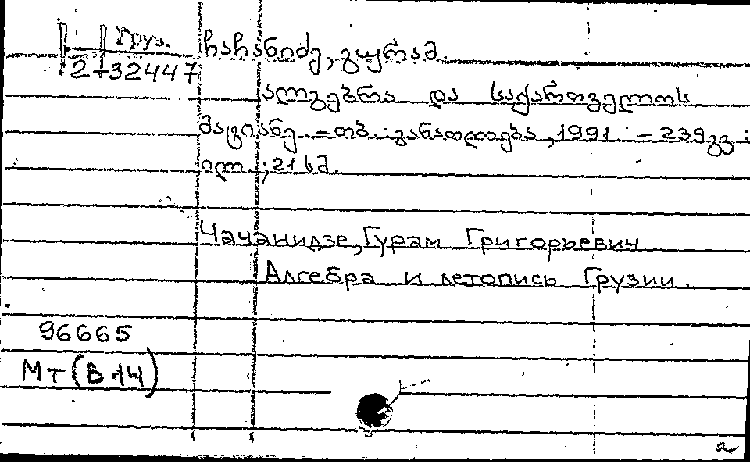 Груз.
2-32447
ჩაჩანიძე, გურამ.
ალგებრა და საქართველოს
მატიანე. – თბ. : განათლება, 1991. – 239 გვ :
ილ. ; 21 სმ.
Чачанидзе, Гурам Григорьевич
Алгебра и летопись Грузии.
96665
Мт (В-14)